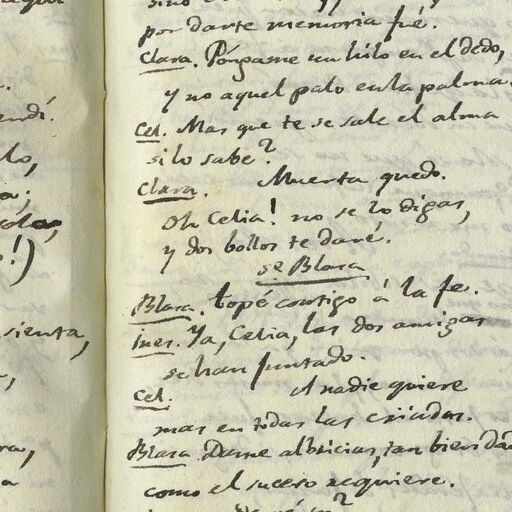 endí.
lo,
o!)
sienta,
por darte memoria fué.
Clara. Póngame un hilo en el dedo,
y no aquel palo en la palma.
Cel. Mas que te se sale el alma
si lo sabe?
Clara. Muerta quedo.
Oh Celia! no se lo digas,
y dos bollos te daré.
se Blasa
Blasa. Topé contigo á la fe.
Ines. Ya, Celia, las dos amigas
se han juntado.
Cel. A nadie quiere
mas en todas las criadas.
Blasa. Dame albricias, tan bien dad
como el suceso requiere.